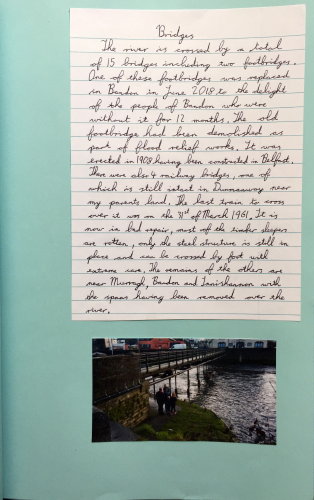 Bridges
The river is crossed by a total
of 15 bridges including two footbridges.
One of these footbridges was replaced
in Bandon in June 2018 to the delight
of the people of Bandon who were
without it for 12 months. The old
footbridge had been demolished as
part of flood relief works. It was
erected in 1908 having been constructed in Belfast.
There were also 4 railway bridges, one of
which is still intact in Dunmanway near
my parents land. The last train to cross
over it was on the 31st of March 1961. It is
now in bad repair, most of the timber sleepers
are rotten, only the steel structure is still in
place and can be crossed by foot with
extreme care. The remains of the others are
near Murragh, Bandon and Innishannon with
the spans having been removed over the
river.